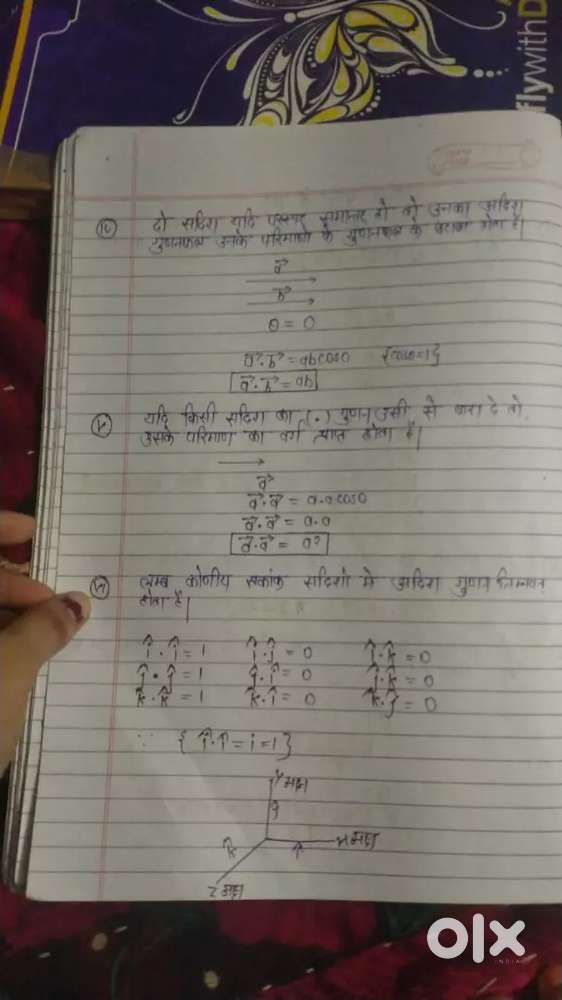 flywithD
दो सदिश यदि परस्पर समान्तर हो तो उनका अदिश
गुणनफल उनके परिमाणो के गुणनफल के बराबर होता है।
a⃗
b⃗
θ = 0
a⃗·b⃗ = abcos0 {cos0=1}
a⃗·b⃗ = ab
यदि किसी सदिश का (·) गुणन उसी से करा दे तो,
उसके परिमाण का वर्ग प्राप्त होता है।
a⃗
a⃗·a⃗ = a·a cos0
a⃗·a⃗ = a·a
a⃗·a⃗ = a²
लम्ब कोणीय एकांक सदिशो मे अदिश गुणन निम्नवत
होता है।
î·î = 1 î·ĵ = 0 î·k̂ = 0
ĵ·ĵ = 1 ĵ·î = 0 ĵ·k̂ = 0
k̂·k̂ = 1 k̂·î = 0 k̂·ĵ = 0
∵ {î·î = i = 1}
y अक्ष
ĵ
k̂ î x अक्ष
z अक्ष
olx
INDIA